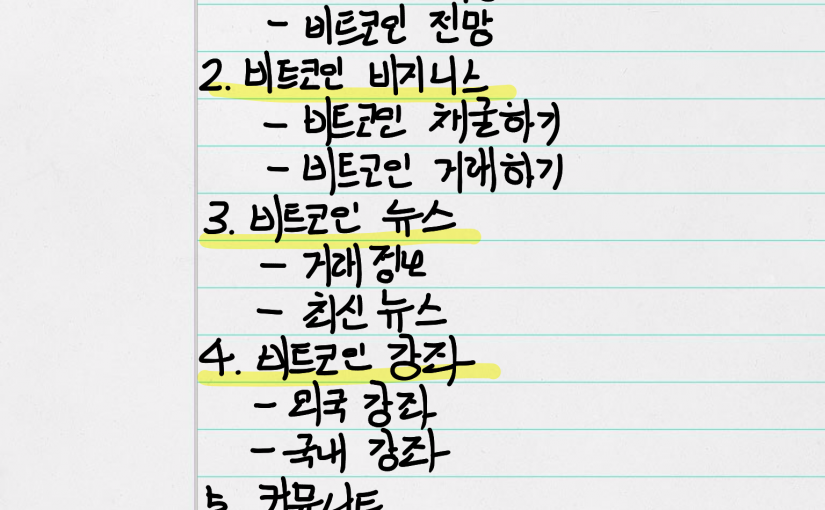 - 비트코인 전망
2. 비트코인 비지니스
- 비트코인 채굴하기
- 비트코인 거래하기
3. 비트코인 뉴스
- 거래 정보
- 최신 뉴스
4. 비트코인 강좌
- 외국 강좌
- 국내 강좌
5. 커뮤니트